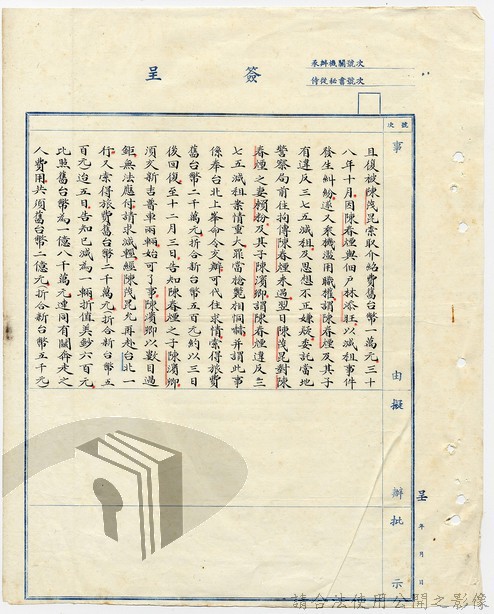 承辦機關號次
侍從秘書號次
簽呈
號次
事由擬辦批示
且復被陳茂昆索取介紹費舊台幣一萬元三十
八年十月因陳春煙與佃戶林添莊以減租事件
發生糾紛遂又乘機濫用職權謂陳春煙及其子
有違反三七五減租及思想不正嫌疑委託當地
警察局前往拘傳陳春煙未過翌日陳茂昆對陳
春煙之妻獨扮及其子陳濱卿謂陳春煙違反三
七五減租案情重大罪當槍斃相恫嚇并謂此事
係奉台北上峯命令交辦可代往求情索得旅費
舊台幣二千萬元折合新台幣五百元約以三日
後回復至十二月三日告知陳春煙之子陳濱卿
須交新吉普車兩輛始可了事陳濱卿以款目過
鉅無法應付請求減輕經陳茂昆允再赴台北一
行又索得旅費舊台幣二千萬元折合新台幣五
百元迨五日告知已減為一輛折值美鈔六百元
比照舊台幣為一億八千萬元連同有關奔走之
人費用共須舊台幣二億元折合新台幣五千元
呈 年 月 日
請合法使用公開之影像